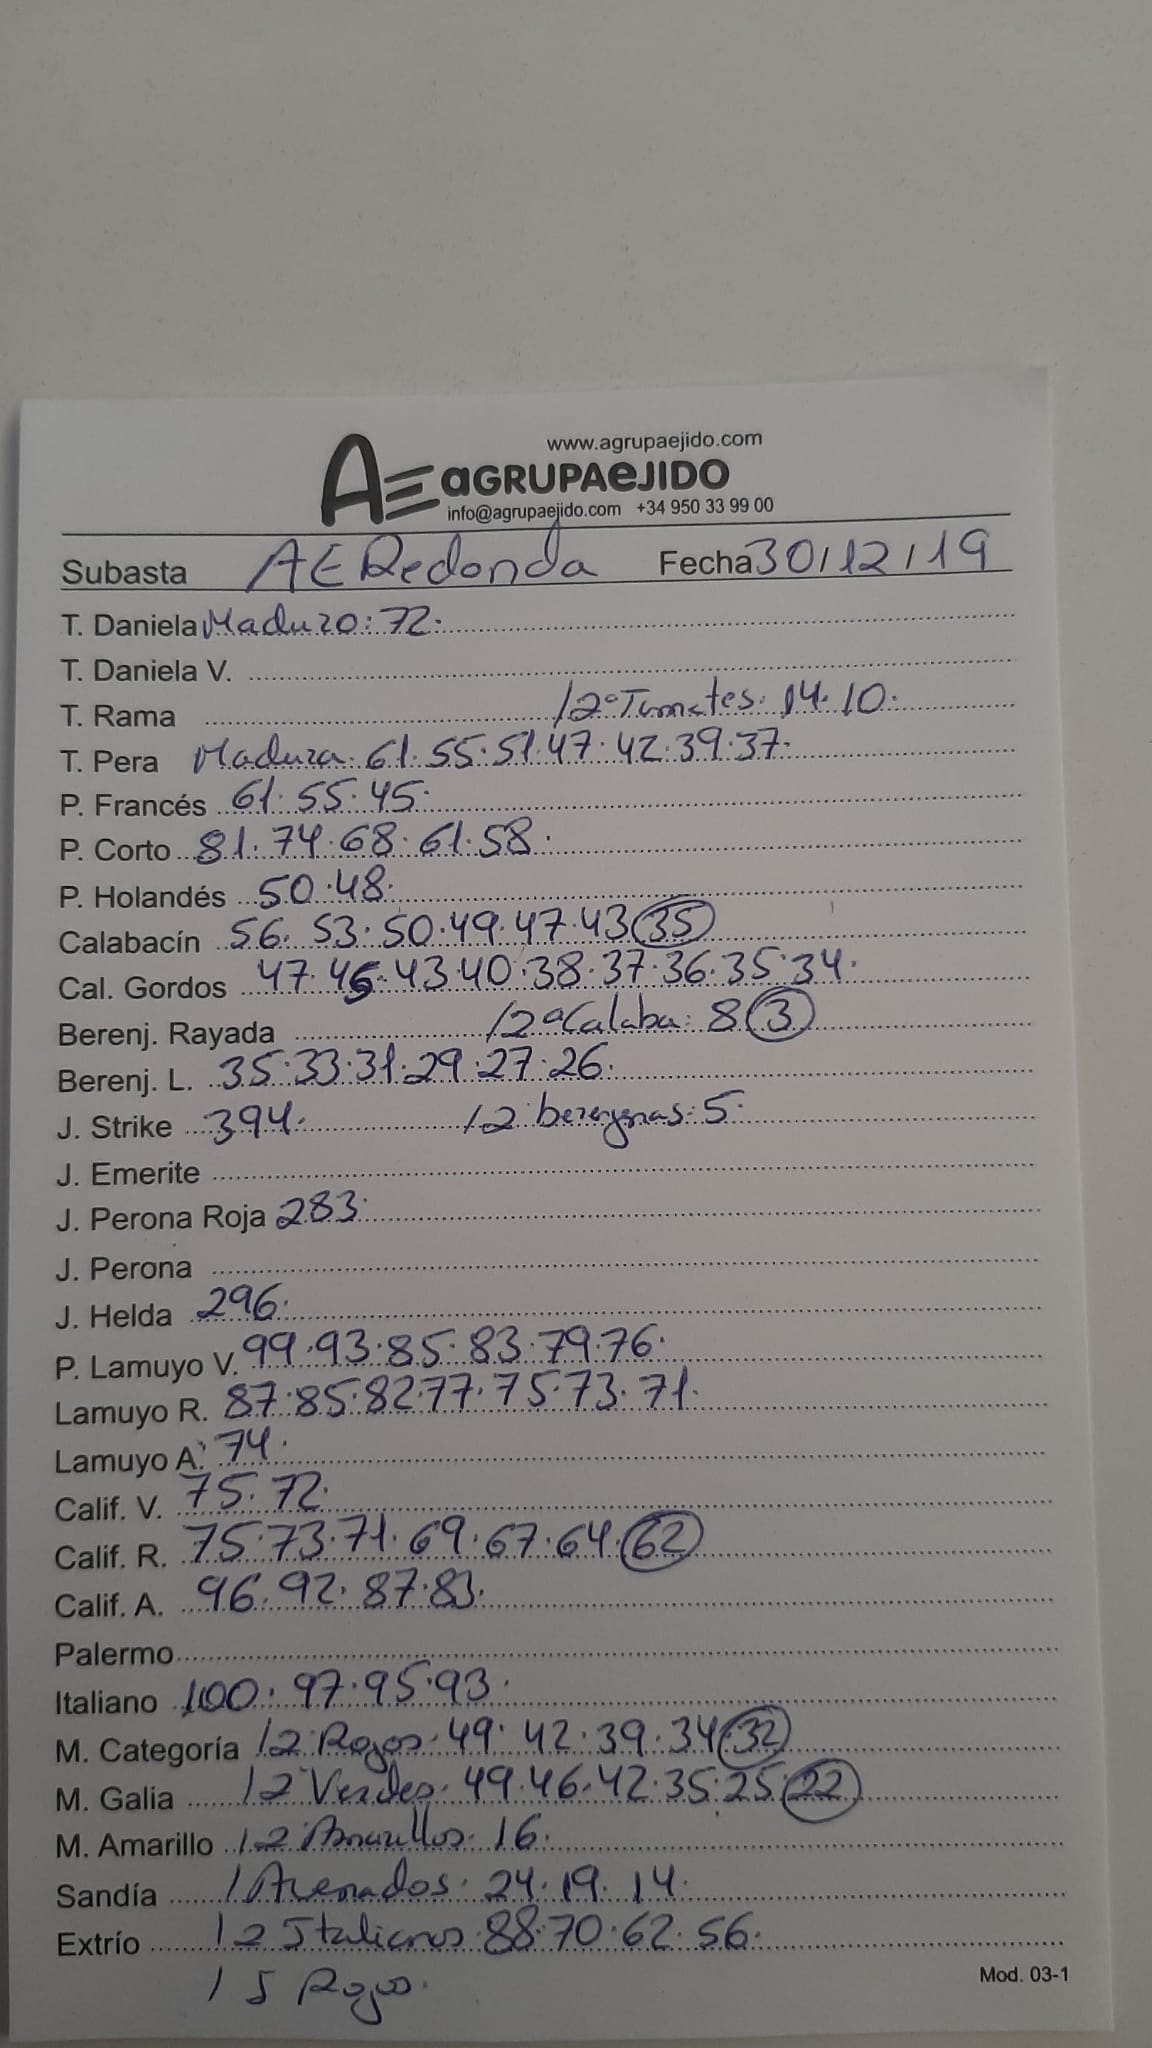 www.agrupaejido.com
AE aGRUPAeJIDO
info@agrupaejido.com +34 950 33 99 00
Subasta AE Redonda Fecha 30/12/19
T. Daniela Maduro: 72.
T. Daniela V.
T. Rama / 2º Tomates: 14. 10.
T. Pera Madura: 61. 55. 51. 47. 42. 39. 37.
P. Francés 61. 55. 45.
P. Corto 81. 74. 68. 61. 58.
P. Holandés 50. 48.
Calabacín 56. 53. 50. 49. 47. 43 35
Cal. Gordos 47. 45. 43. 40. 38. 37. 36. 35. 34.
Berenj. Rayada / 2ª Calaba: 8 3
Berenj. L. 35. 33. 31. 29. 27. 26.
J. Strike 394. / 2 berengenas: 5.
J. Emerite
J. Perona Roja 283.
J. Perona
J. Helda 296.
P. Lamuyo V. 99. 93. 85. 83. 79. 76.
Lamuyo R. 87. 85. 82. 77. 75. 73. 71.
Lamuyo A. 74.
Calif. V. 75. 72.
Calif. R. 75. 73. 71. 69. 67. 64. 62
Calif. A. 96. 92. 87. 83.
Palermo
Italiano 100. 97. 95. 93.
M. Categoría / 2 Rojos. 49. 42. 39. 34. 32
M. Galia / 2 Verdes. 49. 46. 42. 35. 25. 22
M. Amarillo / 2 Amarillos. 16.
Sandía / Asenados. 24. 19. 14.
Extrío / 2 Italianos. 88. 70. 62. 56.
/ 5 Rojos.
Mod. 03-1